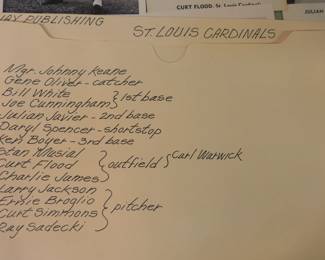 CURT FLOOD, St. Louis Cardinals
JULIAN
JAY PUBLISHING
ST. LOUIS CARDINALS
Mgr. Johnny Keane
Gene Oliver - catcher
Bill White
Joe Cunningham } 1st base
Julian Javier - 2nd base
Daryl Spencer - shortstop
Ken Boyer - 3rd base
Stan Musial
Curt Flood } outfield } Carl Warwick
Charlie James
Larry Jackson
Ernie Broglio
Curt Simmons } pitcher
Ray Sadecki